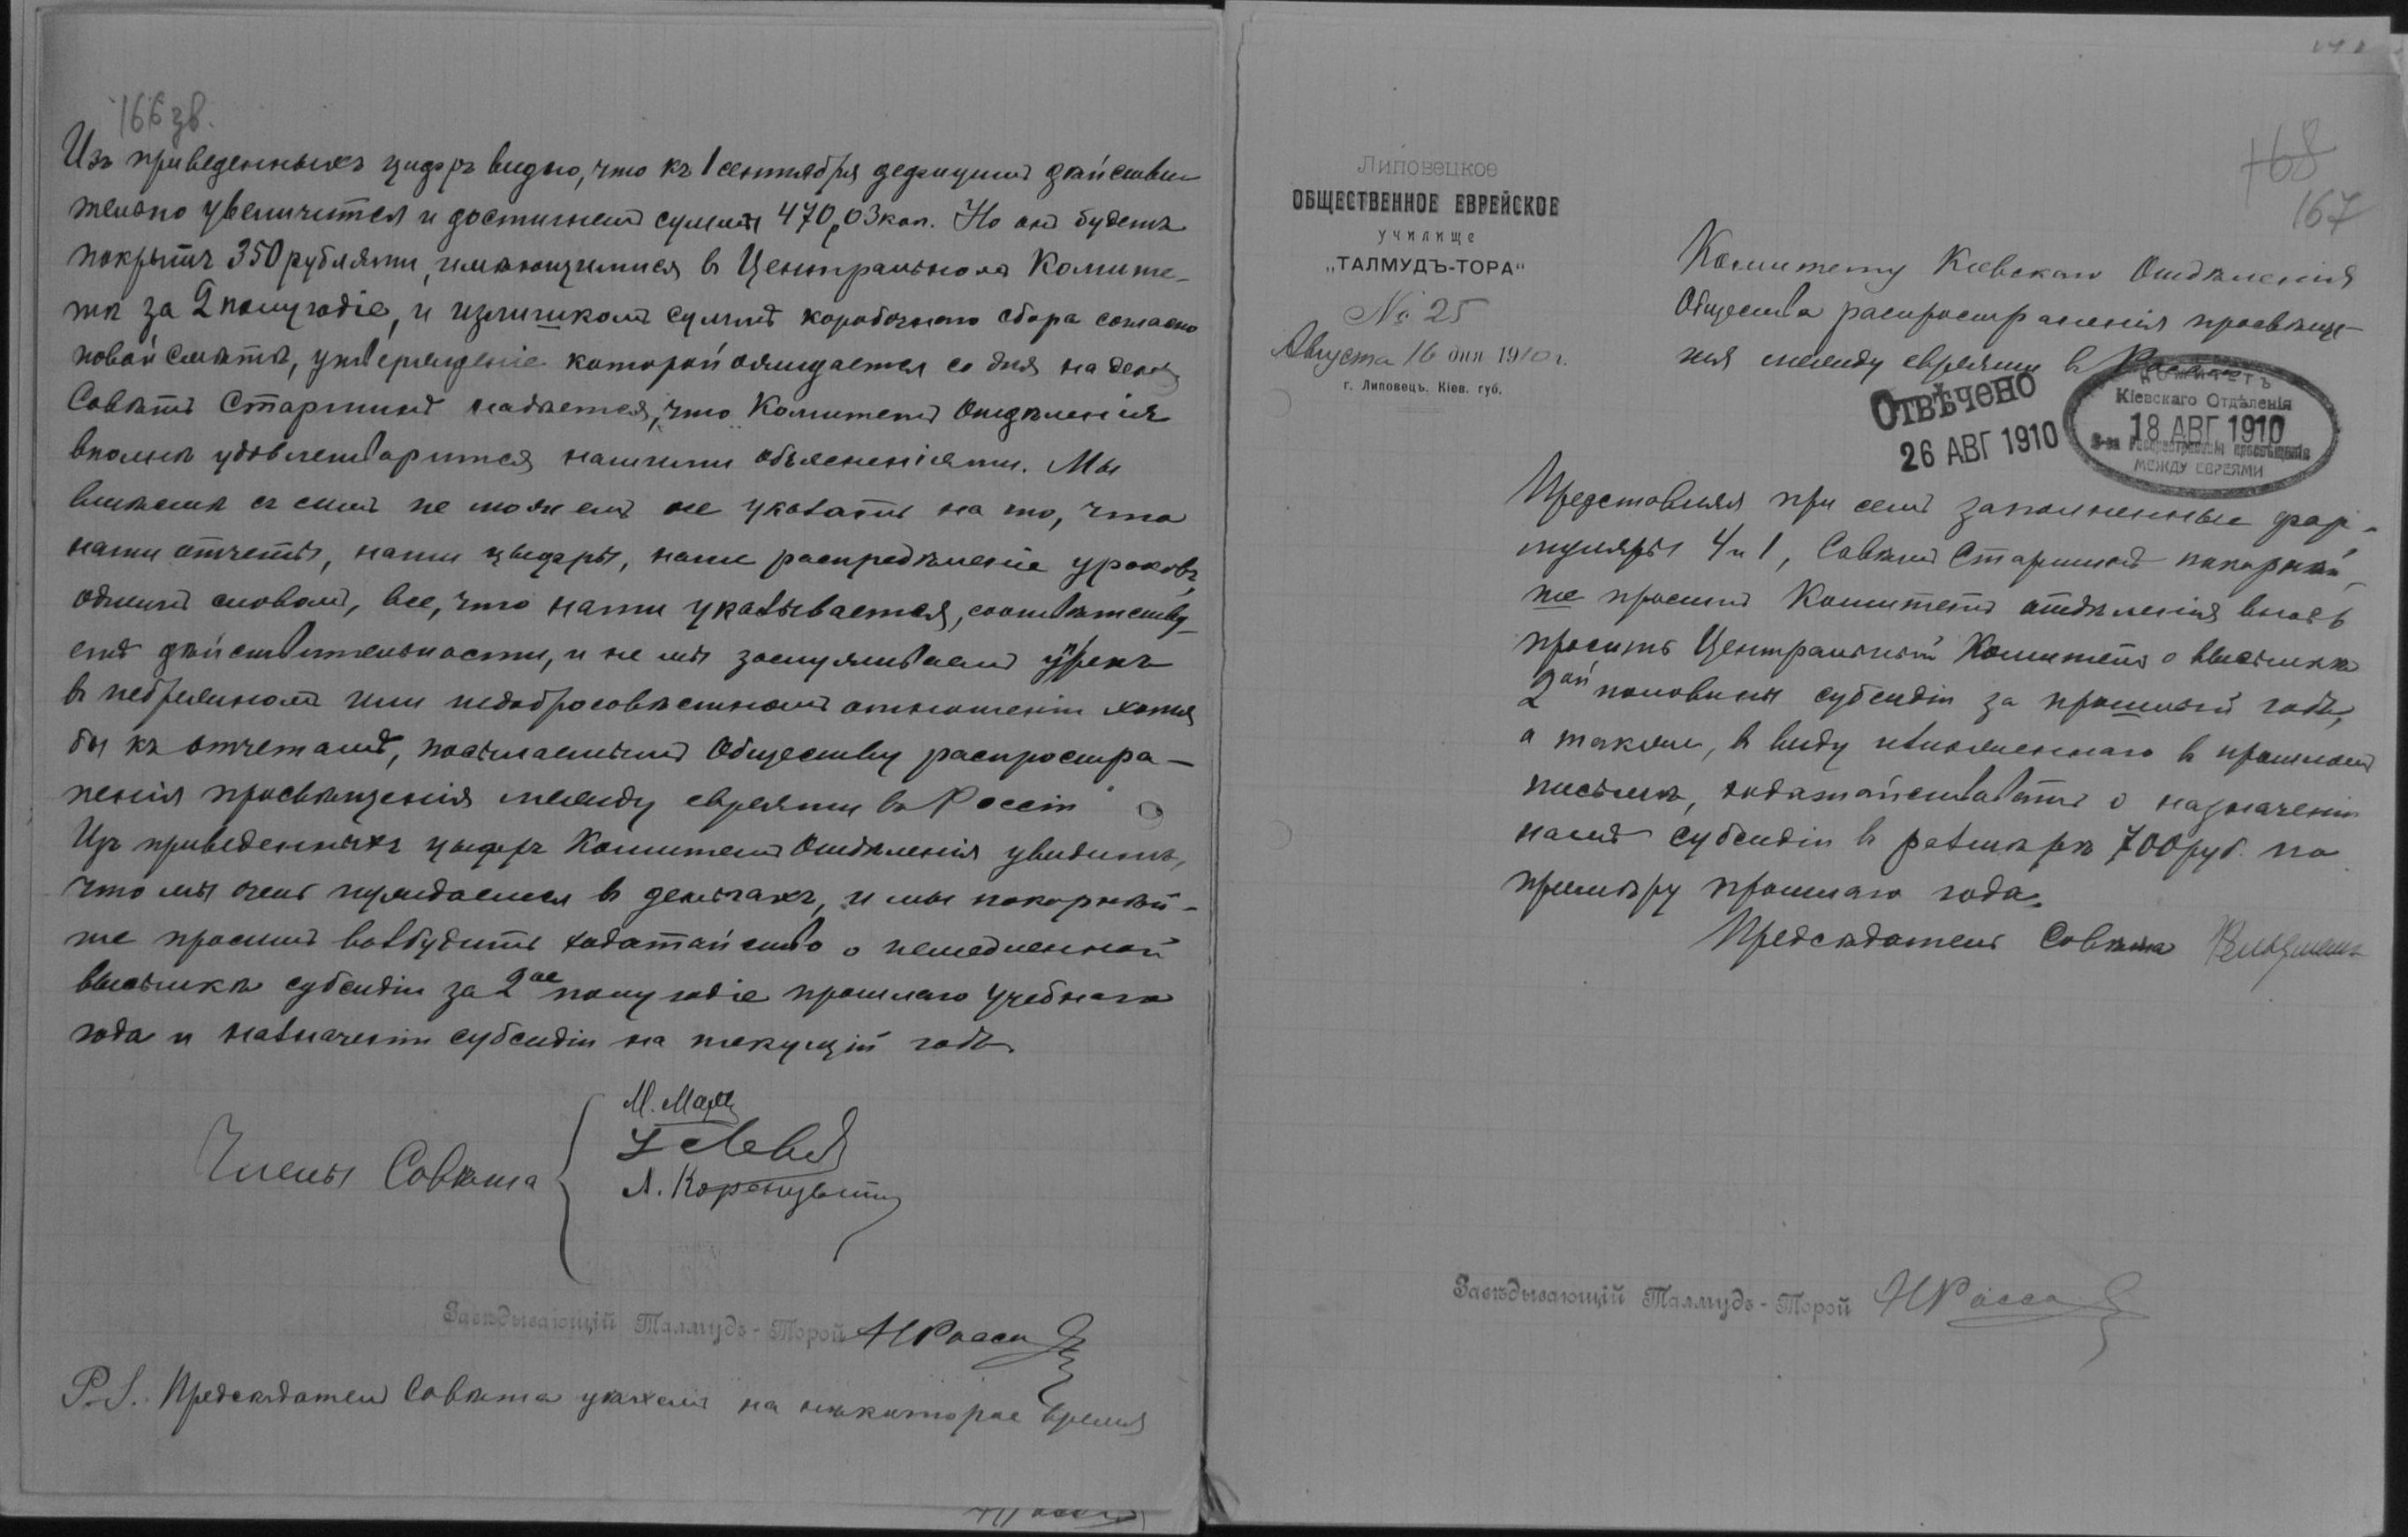 166 зв.
Изъ приведенныхъ цифръ видно, что къ 1 сентября дефицитъ действи
тельно увеличится и достигнетъ суммы 470 р 03 коп. Но онъ будетъ
покрытъ 350 рублями, имѣющимися въ Центральномъ Комите-
тѣ за 2 полугодіе, и излишкомъ суммъ коробочнаго сбора согласно
новой смѣты, утвержденіе которой ожидается со дня на день
Совѣтъ Старшинъ надѣется, что Комитетъ Отдѣленія
вполнѣ удовлетворится нашими объясненіями. Мы
вмѣстѣ съ симъ не можемъ не указать на то, что
наши отчеты, наши цифры, наше распредѣленіе уроковъ,
однимъ словомъ, все, что нами указывается, соотвѣтству-
етъ дѣйствительности, и не мы заслуживаемъ упрекъ
въ небрежномъ или недобросовѣстномъ отношеніи хотя
бы къ отчетамъ, посылаемымъ Обществу распростра-
ненія просвѣщенія между евреями въ Россіи
Изъ приведенныхъ цифръ Комитетъ Отдѣленія увидитъ,
что мы очень нуждаемся въ деньгахъ, и мы покорнѣй-
ше просимъ возбудить ходатайство о немедленной
высылкѣ субсидіи за 2ое полугодіе прошлаго учебнаго
года и назначеніи субсидіи на текущій годъ
Члены Совѣта
М.
Л.
Завѣдывающій Талмудъ-Торой
P.S. Предсѣдатель Совѣта уѣхалъ на нѣкоторое время
168
167
Липовецкое
ОБЩЕСТВЕННОЕ ЕВРЕЙСКОЕ
училище
„ТАЛМУДЪ-ТОРА“
№ 25
Августа 16 дня 1910 г.
г. Липовецъ, Кіев. губ.
Комитету Кіевскаго Отдѣленія
Общества распространенія просвѣще-
нія между евреями въ Россіи
ОТВѢЧЕНО
26 АВГ 1910
КОМИТЕТЪ
Кіевскаго Отдѣленія
18 АВГ 1910
О-ва Распространенія просвѣщенія
МЕЖДУ ЕВРЕЯМИ
Представляя при семъ заполненные фор-
муляры 4 и 1, Совѣтъ Старшинъ покорнѣй-
ше проситъ Комитетъ отдѣленія вновь
просить Центральный Комитетъ о высылкѣ
2ой половины субсидіи за прошлый годъ,
а также, въ виду изложеннаго въ прошломъ
письмѣ, ходатайствовать о назначеніи
намъ субсидіи въ размѣрѣ 700 руб. по
примѣру прошлаго года.
Предсѣдатель Совѣта
Завѣдывающій Талмудъ-Торой